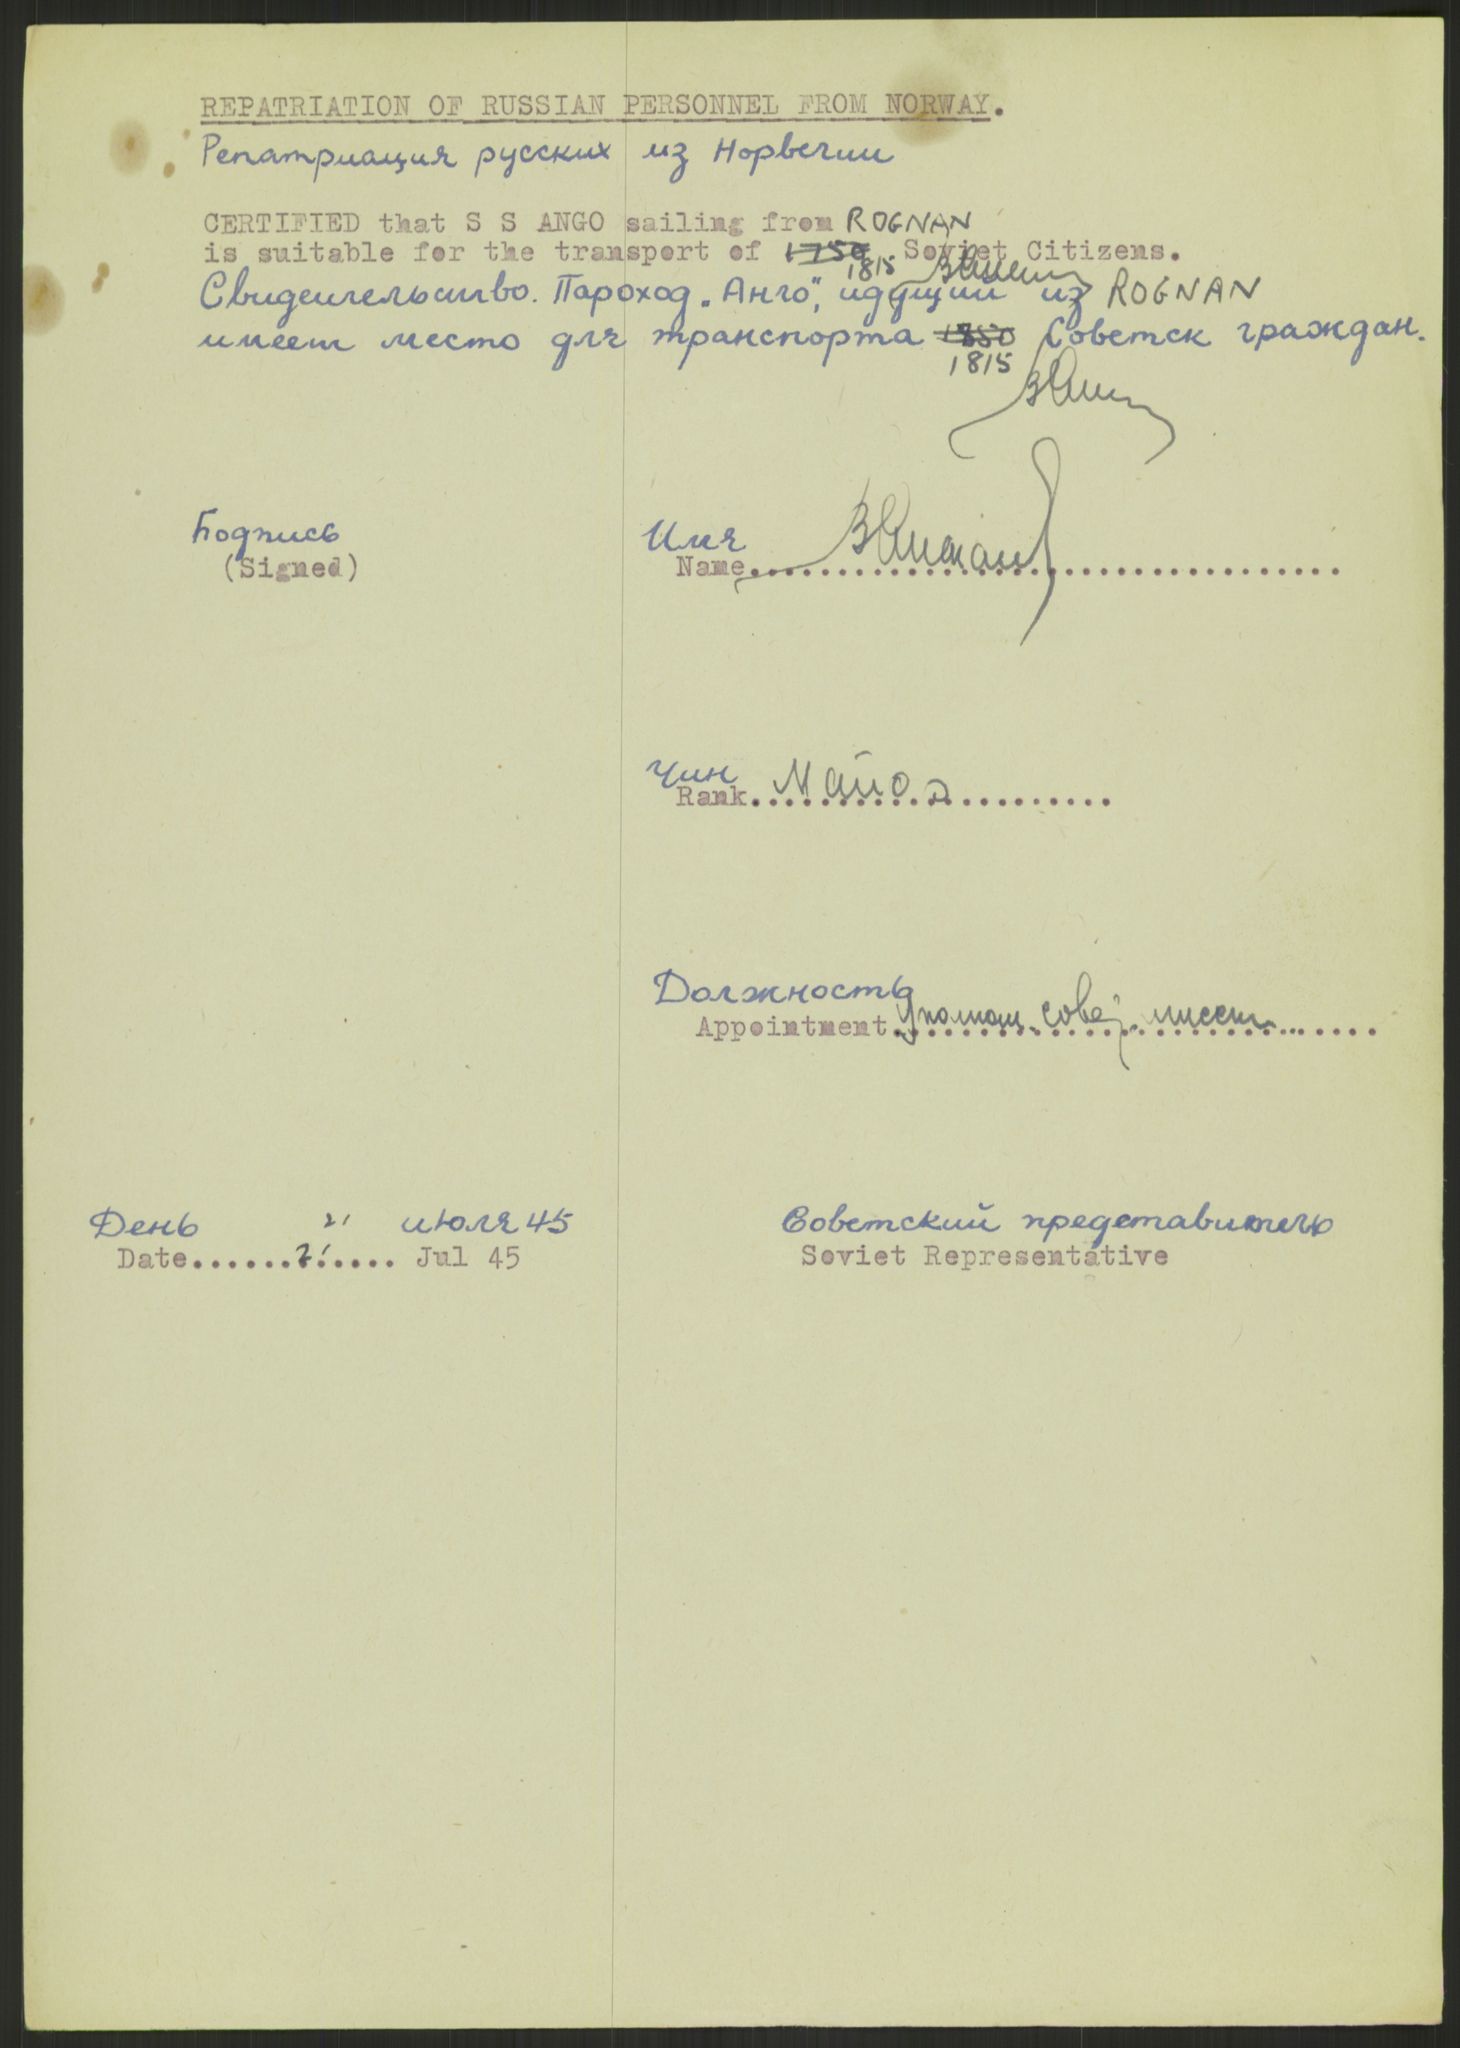 REPATRIATION OF RUSSIAN PERSONNEL FROM NORWAY.
Репатриация русских из Норвегии
CERTIFIED that S S ANGO sailing from ROGNAN
is suitable for the transport of 1750 1815 Soviet Citizens.
Свидетельство. Пароход „Анго", идущий из ROGNAN
имеет место для транспорта 1850 Советск граждан.
1815
Подпись
(Signed)
Имя
Name
Чин
Rank Майор
Должность
Appointment совет. миссии
День 21 июля 45
Date 21 Jul 45
Советский представитель
Soviet Representative